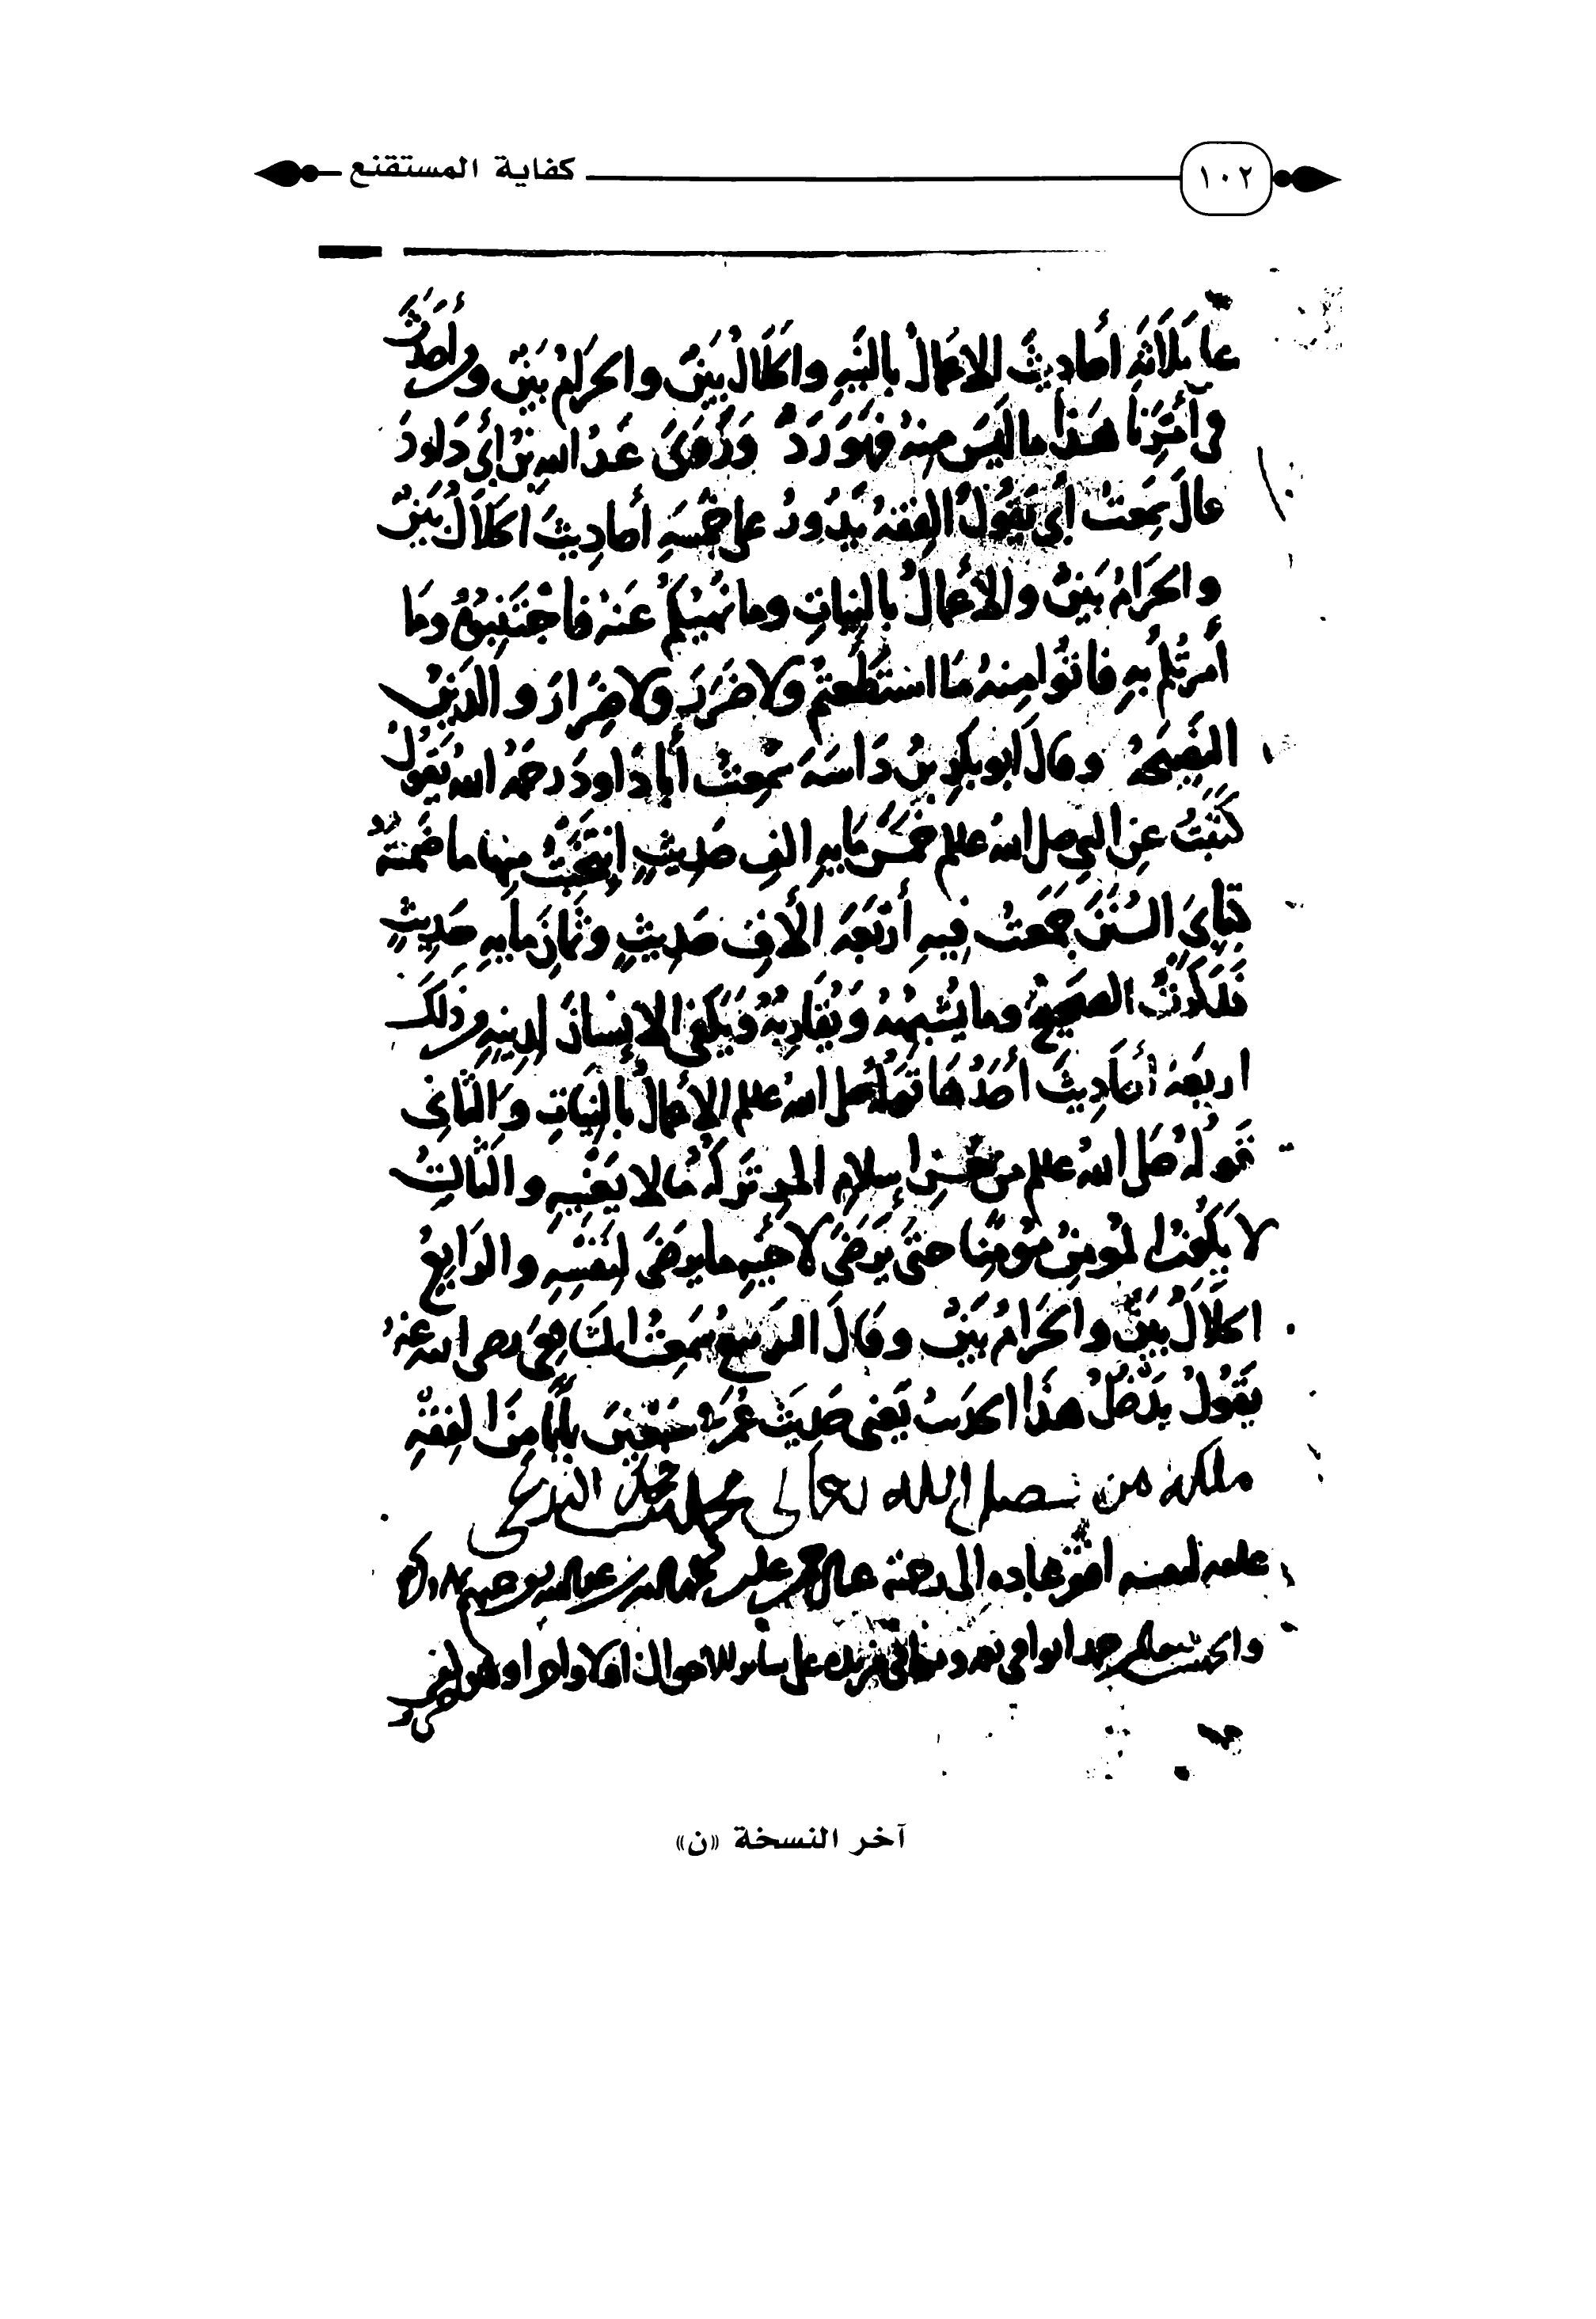 ١٠٢ كفاية المستقنع
على ثلاثة أحاديث الاعمال بالنية والحلال بين والحرام بين ومن أحدث
في أمرنا هذا ما ليس منه فهو رد وروى عبد الله بن أبي داود
قال سمعت أبي يقول الفقه يدور على خمسة أحاديث الحلال بين
والحرام بين والأعمال بالنيات وما نهيتكم عنه فاجتنبوه وما
أمرتكم به فاتوا منه ما استطعتم ولا ضرر ولا ضرار والدين
النصيحة وقال أبو بكر بن داسة سمعت أبا داود رحمه الله يقول
كتبت عن النبي صلى الله عليه وسلم خمس ماية الف حديث انتخبت منها ما ضمنته
كتابي السنن جمعت فيه أربعة الأف حديث وثمان ماية حديث
فذكرت الصحيح وما يشبهه ويقاربه ويكفي الإنسان لدينه من ذلك
اربعة أحاديث أحدها قوله صلى الله عليه وسلم الأعمال بالنيات والثاني
قوله صلى الله عليه وسلم من حسن إسلام المرء تركه ما لا يعنيه والثالث
لا يكون المومن مؤمنا حتى يرضى لأخيه ما يرضى لنفسه والرابع
الحلال بين والحرام بين وقال الربيع سمعت الشافعي رضي الله عنه
يقول يدخل هذا الحديث يعني حديث عمر في سبعين بابا من الفقه
ملكه من فضل الله تعالى محمد
علقه لنفسه افقر عباده الى رحمته
والحمد لله حمدا يوافي نعمه ويكافي مزيده على سائر الاحوال اولا واخرا
آخر النسخة «ن»